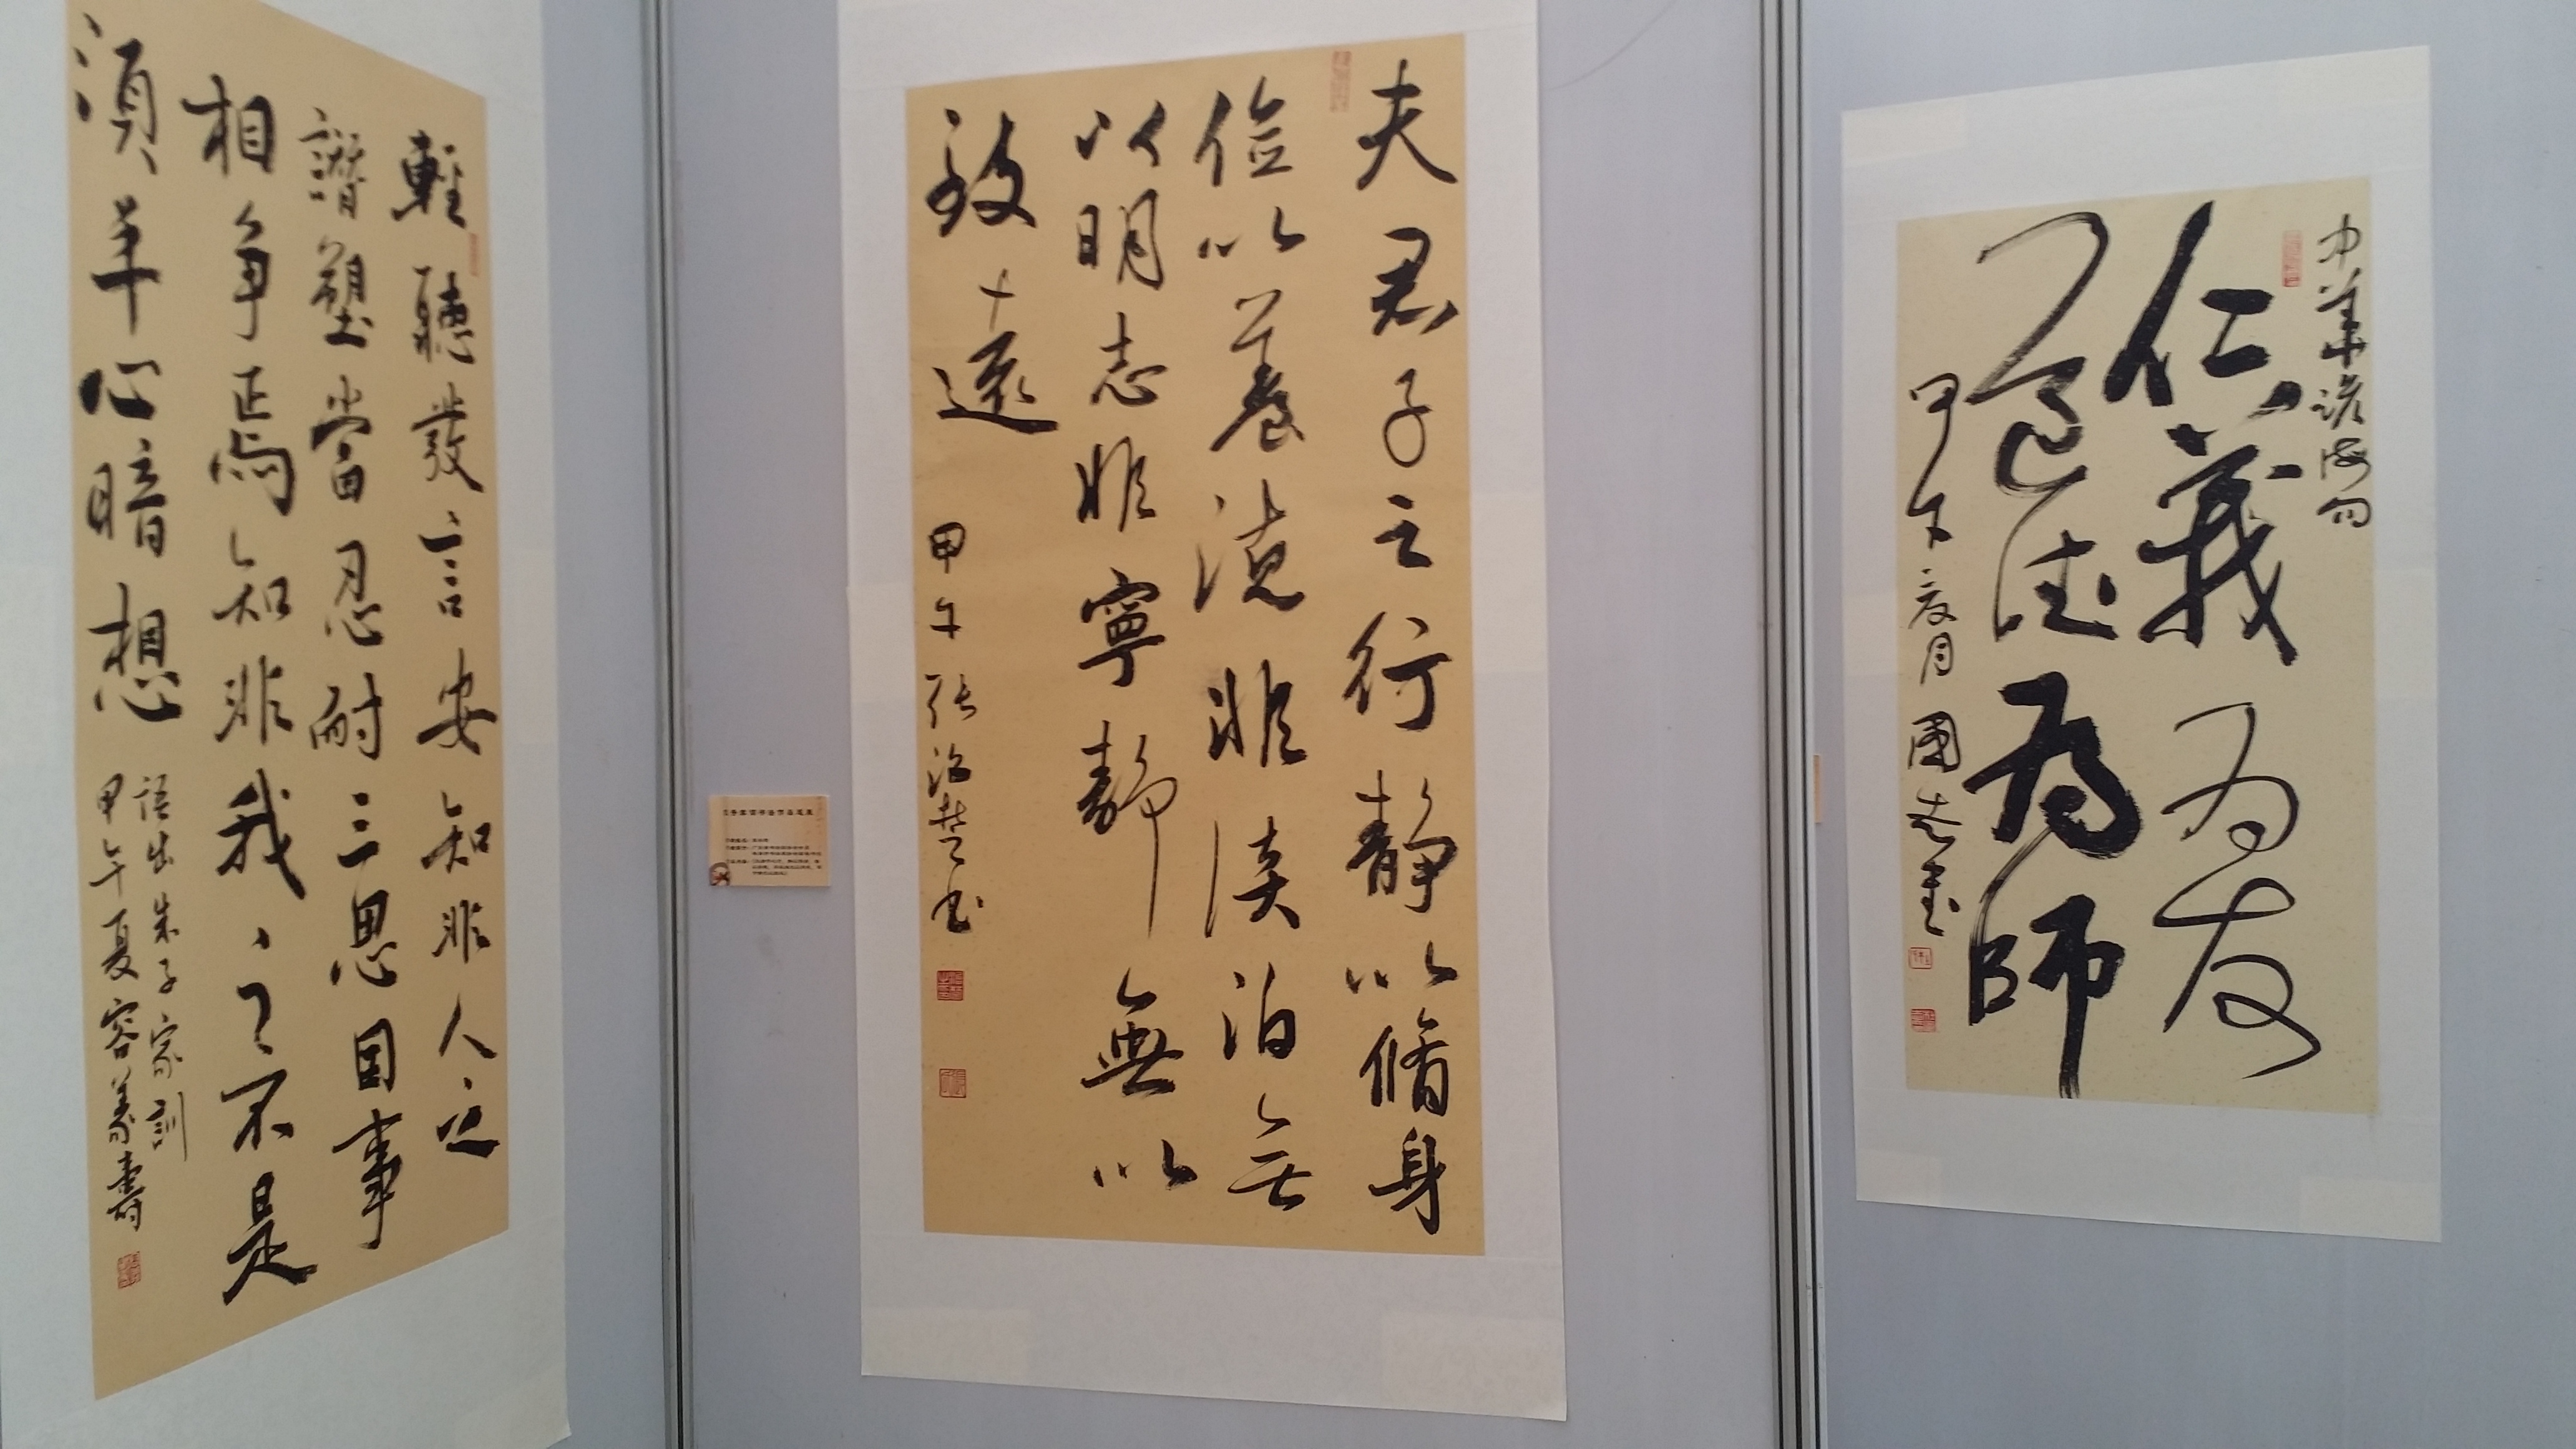 輕聽發言安知非人之
譖塑當忍耐三思因事
相争焉知非我之不是
須平心暗想
語出朱子家訓
甲午夏容
夫君子之行静以脩身
儉以養德非淡泊無
以明志非寧静無以
致遠
甲午张
中華
仁義为友
道德為師
甲午夏月國